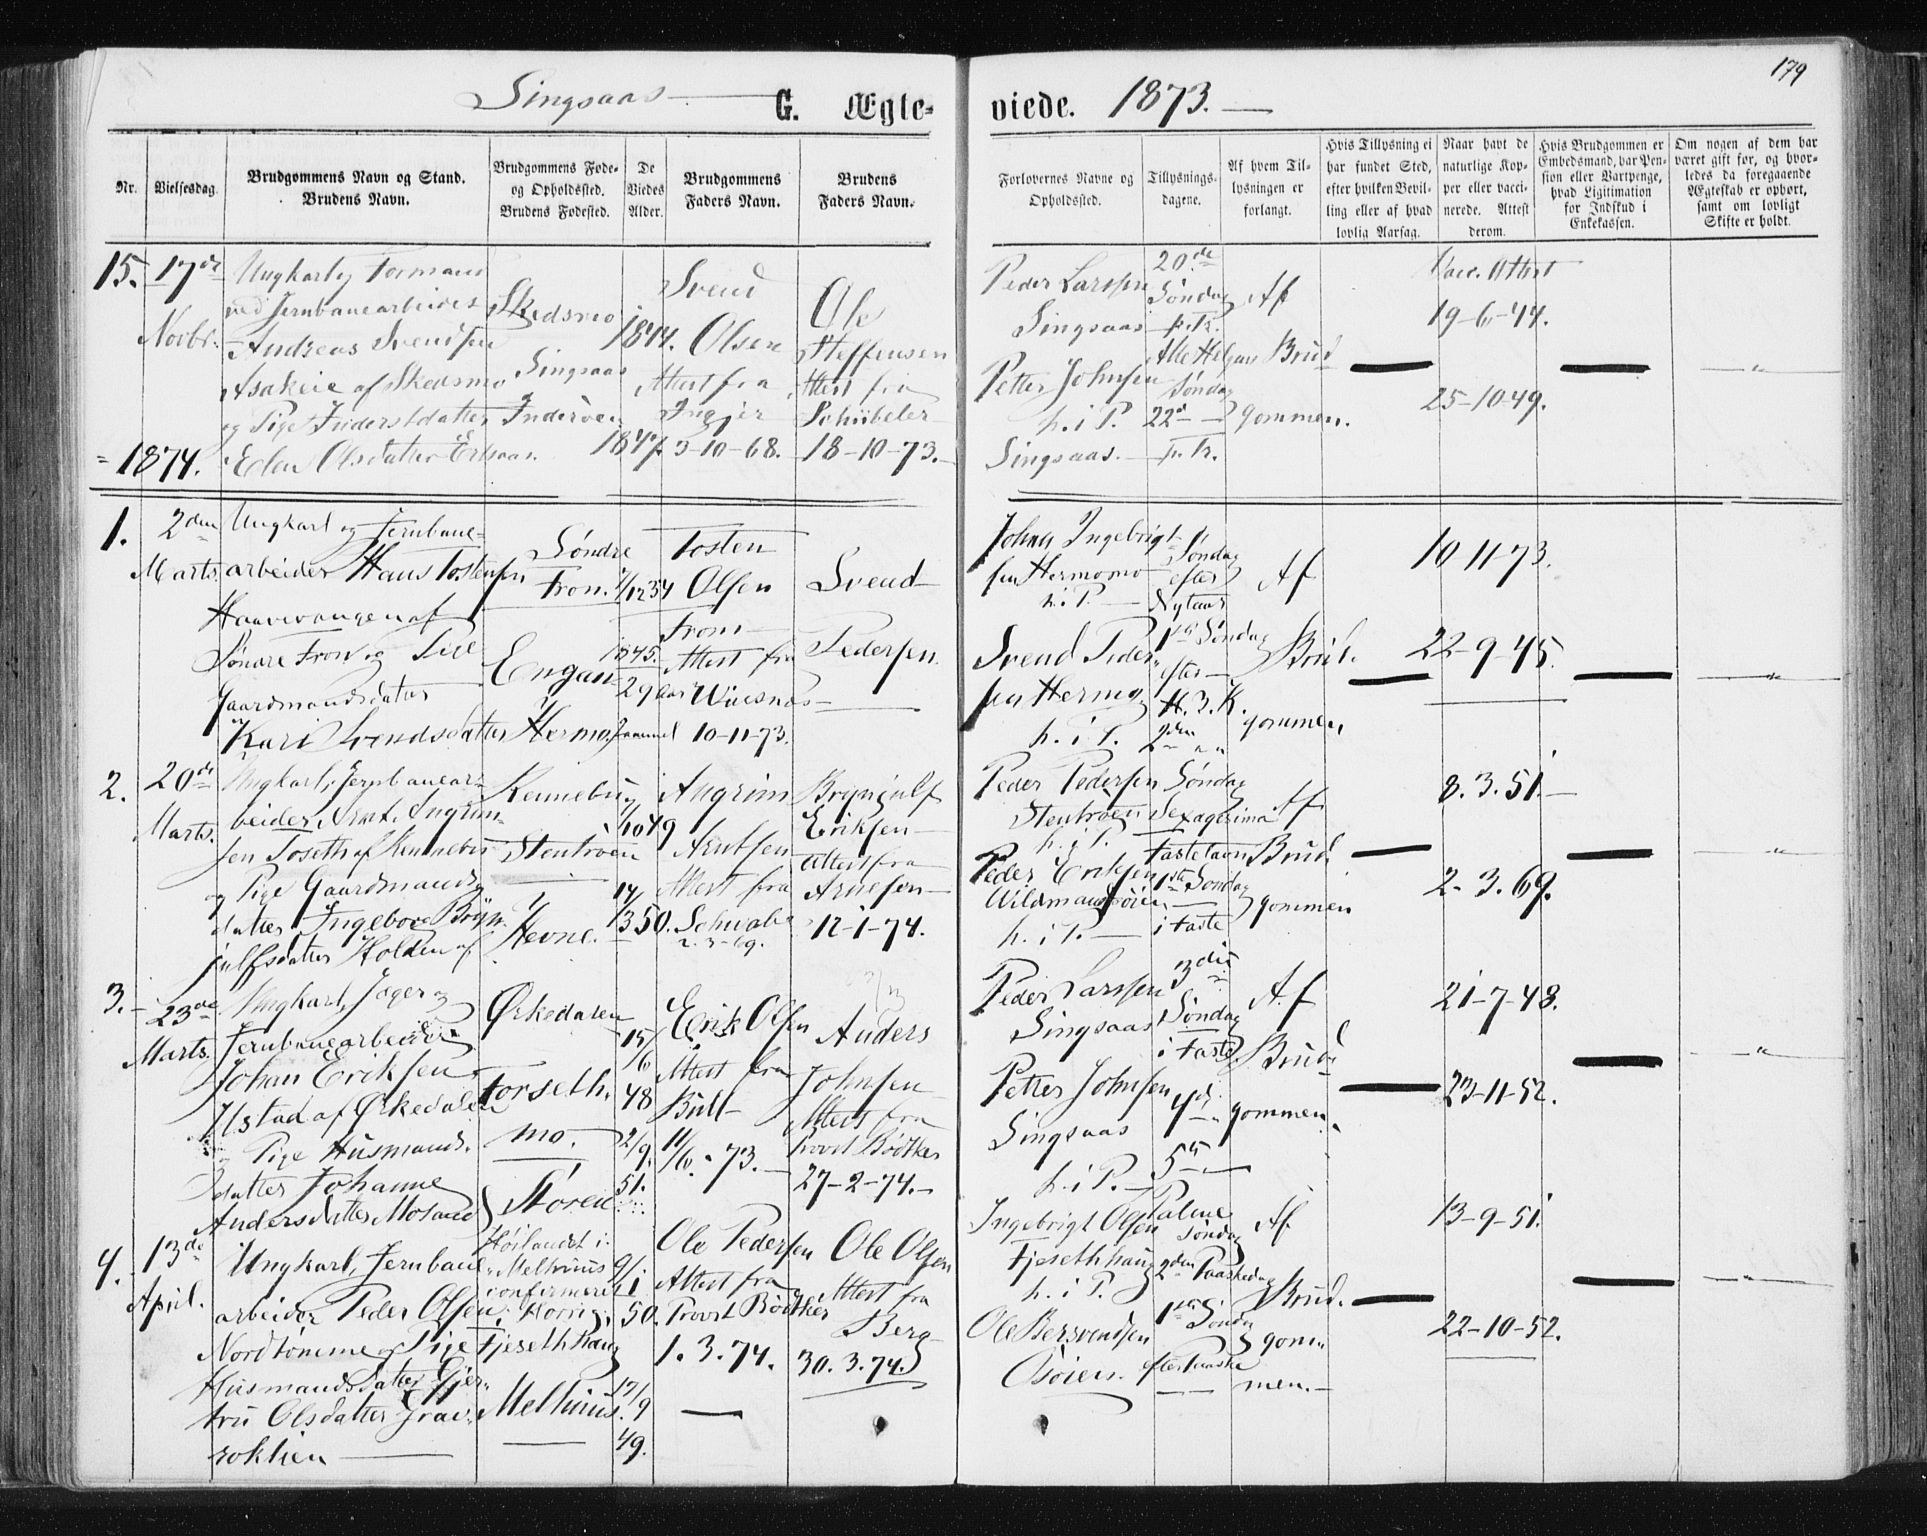 179
Singsaas G. Ægte- viede. 1873.
Nr.
Vielsesdag.
Brudgommens Navn og Stand.
Brudens Navn.
Brudgommens Føde-
og Opholdssted.
Brudens Fødested.
De
Viedes
Alder.
Brudgommens
Faders Navn.
Brudens
Faders Navn.
Forlovernes Navne og
Opholdssted.
Tillysnings-
dagene.
Af hvem Til-
lysningen er
forlangt.
Hvis Tillysning ei
har fundet Sted,
efter hvilken Bevil-
ling eller af hvad
lovlig Aarsag.
Naar havt de
naturlige Kop-
per eller vacci-
nerede. Attest
derom.
Hvis Brudgommen er
Embedsmand, har Pen-
sion eller Vartpenge,
hvad Legitimation
for Indskud i
Enkekassen.
Om nogen af dem har
været gift før, og hvor-
ledes da foregaaende
Ægteskab er ophørt,
samt om lovligt
Skifte er holdt.
15.
17de
Novbr.
Ungkarl, Formand
ved Jernbanearbeidet
Andreas Svendsen
Asakeie af Skedsmo
og Pige Inderstdatter
Elen Olsdatter
Skedsmo
Singsaas
Inderøen
1844.
1847
Svend
Olsen
Attest fra
5-10-68.
Ole
Steffensen
Attest fra
Schübeler
18-10-73.
Peder Larssen
Singsaas
Petter Johnsen
h. i P.
Singsaas.
20de
Søndag
p. Tr.
Alle Helgens
Søndag
22d
p. Tr.
Af
Brud
gommen.
Vacc. Attest
19-6-44.
25-10-49.
1874.
1.
2den
Marts
Ungkarl og Jernbane-
arbeider Hans Tostensen
Haavevangen af
Søndre Fron og Pige
Gaardmandsdatter
Kari Svendsdatter
Søndre
Fron.
Engan
Hermo
1845.
29 aar
gammel
Tosten
Olsen
Fron
Attest fra
10-11-73.
Svend
Pedersen
Johan Ingebrigt-
sen Hermomo
h. i P.
Svend Peder-
sen Hermo
h. i P.
Søndag
efter
Nytaar
1ste Søndag
efter
H. 3. K.
2den
Af
Brud.
gommen
10 11 73.
22-9-45.
2.
20de
Marts.
Ungkarl, Jernbanear-
beider Arnt Angrim-
sen Toseth af Rennebu
og Pige Gaardmands-
datter Ingebor Bryn-
julfsdatter Holden af
Rennebu
Stentrøen
Hevne.
1/10 49
14/3 50.
Angrim
Arntsen
Attest fra
Schwabe
2-3-69.
Brynjulf
Eriksen
Attest fra
Arnesen
12-1-74.
Peder Pedersen
Stentrøen
h. i P.
Peder Eriksen
Wildmandsøien
h. i P.
Søndag
Sexagesima
Fastelavn
1ste Søndag
i Faste
Af
Brud
gommen
8. 3. 51.
2. 3. 69.
3.
23de
Marts.
Ungkarl, Jæger og
Jernbanearbeider
Johan Eriksen
Ystad af Ørkedalen
og Pige Husmands-
datter Johanne
Andersdatter Moland
Ørkedalen
Forseth-
mo.
Støren
15/6 48
2/9 51.
Erik Olsen
Attest fra
Bull
11/6 - 73.
Anders
Johnsen
Attest fra
Provst Bødtker
27-2-74.
Peder Larssen
Singsaas
Petter Johnsen
Singsaas
h. i P.
3die
Søndag
i Faste
4de
5te
Af
Brud
gommen.
21-7-48.
23-11-52.
4.
13de
April.
Ungkarl, Jernbane-
arbeider Peder Olsen
Nordtømme og Pige
Husmandsdatter Gjer-
tru Olsdatter Grav-
roklien
Høilandet i
Melhuus
confirmeret
i Horrig
Fjesethhaug
Melhuus.
9/1 50.
17/9 49.
Ole Pedersen
Attest fra
Provst Bødtker
1. 3. 74.
Ole Olsen
Attest fra
Berg
30. 3. 74.
Ingebrigt Olsen
Fjesethhaug
h. i P.
Ole Bersvendsen
Osøien
Palme
Søndag
2den Paaskedag
1ste Søndag
efter Paaske
Af
Brud.
gom-
men.
13-9-51.
22-10-52.